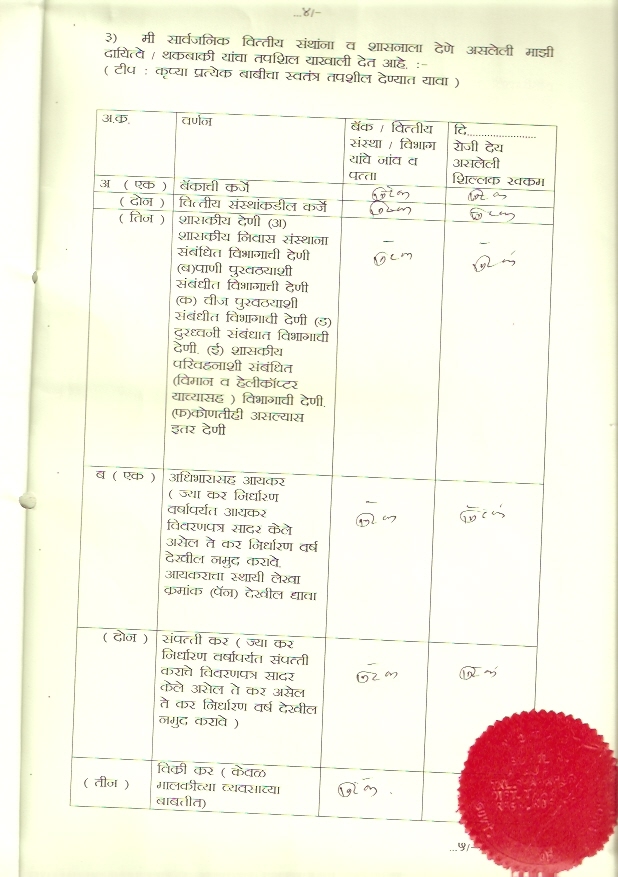 ..४/-
३) मी सार्वजनिक वित्तीय संथांना व शासनाला देणे असलेली माझी
दायित्वे / थकबाकी यांचा तपशिल याखाली देत आहे. :-
( टीप : कृप्या प्रत्येक बाबीचा स्वतंत्र तपशील देण्यात यावा )
अ.क्र. वर्णन बॅंक / वित्तीय संस्था / विभाग यांचे नांव व पत्ता दि...................... रोजी देय असलेली शिल्लक रक्कम
अ ( एक ) बॅंकाची कर्जे निरंक निरंक
( दोन ) वित्तीय संस्थांकडील कर्जे निरंक निरंक
( तिन ) शासकीय देणी (अ)
शासकीय निवास संस्थाना
संबंधित विभागाची देणी
(ब)पाणी पुरवठयाशी
संबंधीत विभागाची देणी
(क) वीज पुरवठयाशी
संबंधीत विभागाची देणी (ड)
दुरध्वनी संबंधात विभागाची
देणी. (ई) शासकीय
परिवहनाशी संबंधित
(विमान व हेलीकॉप्टर
याच्यासह ) विभागाची देणी.
(फ)कोणतीही असल्यास
इतर देणी
निरंक निरंक
ब ( एक ) अधिभारासह आयकर
( ज्या कर निर्धारण
वर्षापर्यत आयकर
विवरणपत्र सादर केले
असेल ते कर निर्धारण वर्ष
देखील नमुद करावे.
आयकराचा स्थायी लेखा
क्रमांक (पॅन) देखील द्यावा
निरंक निरंक
( दोन ) संपत्ती कर ( ज्या कर
निर्धारण वर्षापर्यत संपत्ती
कराचे विवरणपत्र सादर
केले असेल ते कर असेल
ते कर निर्धारण वर्ष देखील
नमुद करावे )
निरंक निरंक
( तीन ) विकी कर ( केवळ
मालकीच्या व्यवसाच्या
बाबतीत)
निरंक .
...५/-